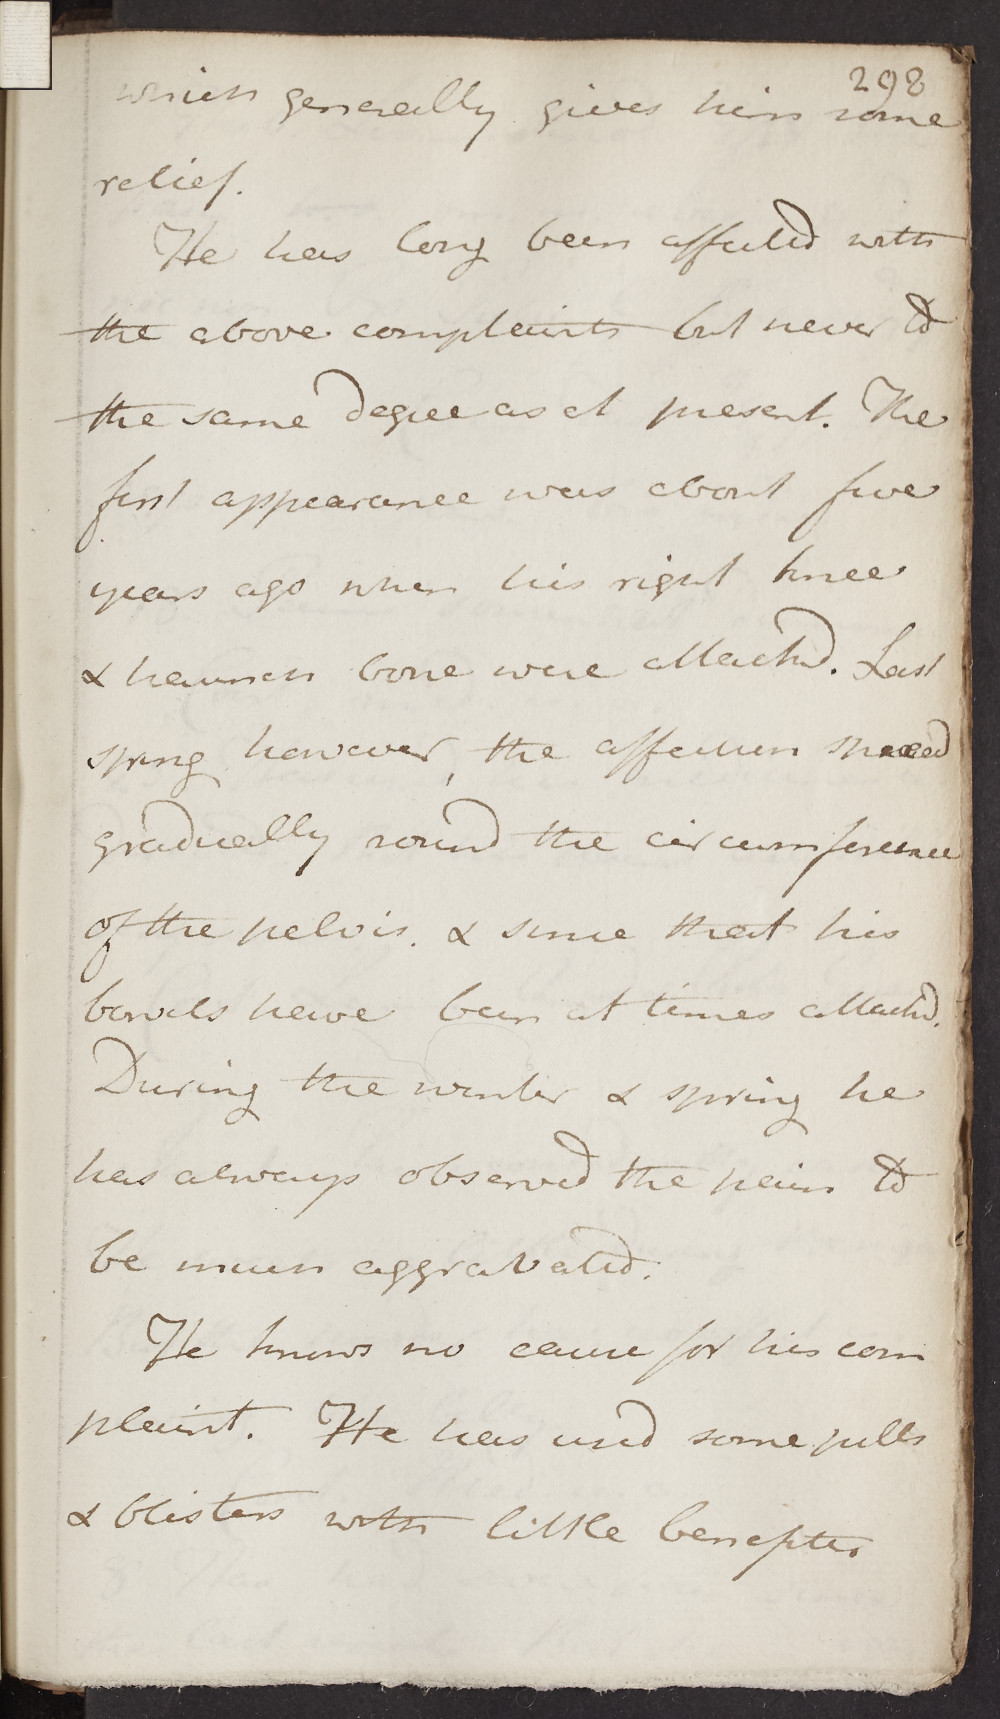 298
which generally gives him some
relief.
He has long been affected with
the above complaints but never to
the same degree as at present. The
first appearance was about five
years ago when his right knee
& haunch bone were attack'd. Last
spring however, the affection spread
gradually round the circumference
of the pelvis. & since that his
bowels have been at times attack'd.
During the winter & spring he
has always observed the pain to
be much aggravated.
He knows no cause for his com
plaint. He has used some pills
& blisters with little benefit.